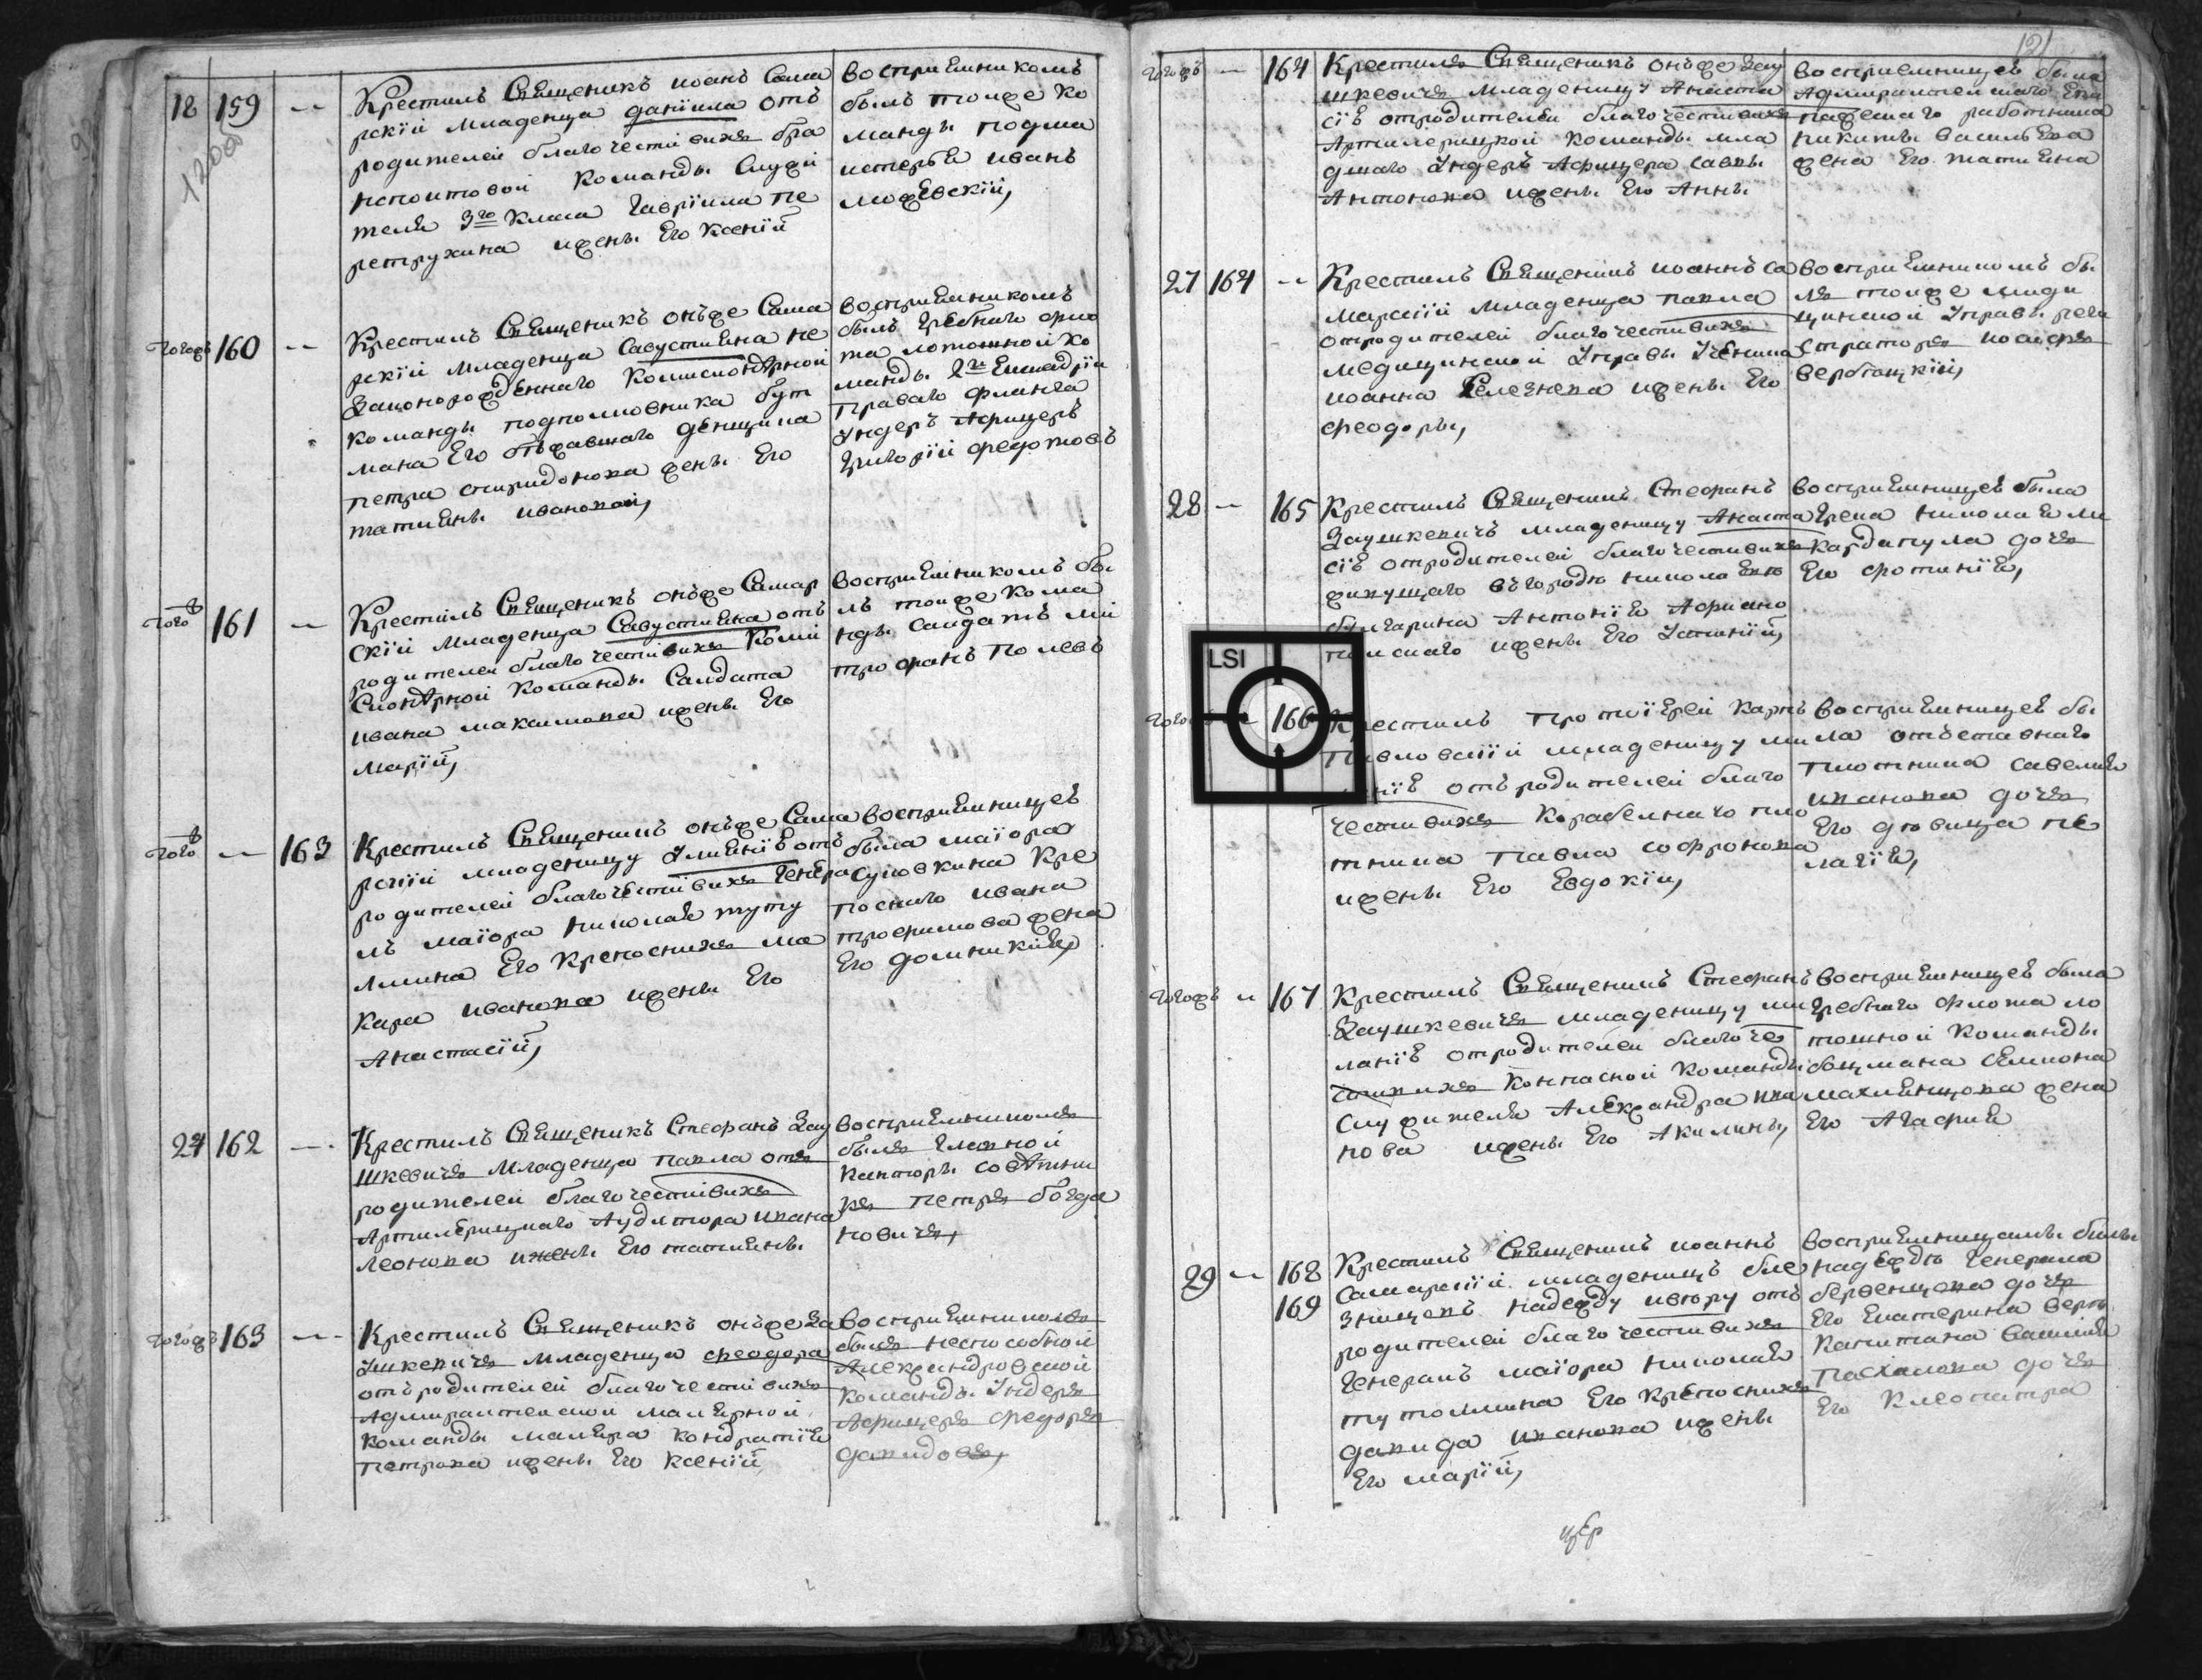 18 159 -- Крестилъ Священикъ иоанъ Сама
рскїи младенца данїила отъ
родителеи благочестивихъ бра
нспоитовои команды Служи
теля 3го класа Гаврїила Пе
ретрухина ижены Его Ксенїи
воспрїемникомъ
былъ тоиже ко
манды подма
истерья иванъ
можевскїи,
тогожъ 160 -- Крестилъ Священикъ онъже Сама
рскїи младенца Савустияна не
законорожденнаго комисионернои
команды подполковника бут
мана Его отъжавшаго денщика
петра спиридонова жены Его
татияны ивановои,
воспрїемникомъ
былъ гребнаго фло
та лотошнои ко
манды 2й Ескадрїи
праваго фланга
ундеръ Афицеръ
григорїи федотовъ
того 161 -- Крестилъ Священикъ онъже Самар
скїи младенца Савустияна отъ
родителеи благочестивихъ коми
сионернои команды Салдата
ивана максимова ижены Его
марїи,
воспрїемникомъ бы
лъ тоиже кома
нды салдатъ ми
трофанъ полевъ
того -- 163 Крестилъ Священикъ онъже Сама
рскїи младеницу Улиянїю отъ
родителеи благочестивихъ генера
лъ маїора николая туту
лмина Его крепоснихъ ма
кара иванова ижены Его
Анастасїи,
воспрїемницею
была маїора
суковкина кре
поснаго ивана
трофимова жена
Его доминикїя,
24 162 -- Крестилъ Священикъ Стефанъ Зау
шкевичъ младенца павла отъ
родителеи благочестивихъ
Артилерицкаго Аудитора ивана
леонова ижены Его татияны
воспрїемникомъ
былъ главнои
канторы советни
къ петръ богда
новичъ,
тогожъ 163 -- Крестилъ Священикъ онъже За
ушкевичъ младенца феодора
отъ родителеи благочестивихъ
Адмиралтеискои малярнои
команды маляра кондратїя
петрова ижены Его Ксенїи
воспрїемникомъ
былъ неспособнои
Александровскои
команды ундеръ
Афицеръ федоръ
давидовъ,
121
тогожъ -- 164 Крестилъ Священикъ онъже Зау
шкевичъ младеницу Анаста
сїю отродителеи благочестивихъ
Артилерицкои команды мла
дшаго ундеръ Афицера савы
Антонова ижены Его Анны
воспрїемницею была
Адмиралтеискаго
работника
никиты васильева
жена Его татияна
27 164 -- Крестилъ Священикъ иоаннъ Са
марскїи младенца павла
отродителеи благочестивихъ
медицинскои управы ученика
иоанна Селезнева ижены Его
феодоры,
воспрїемникомъ бы
лъ тоиже меди
цинскои управы реги
страторъ иосифъ
вербоцкїи,
28 -- 165 Крестилъ Священикъ Стефанъ
Заушкевичъ младеницу Анаста
сїю отродителеи благочестивихъ
живущаго въгородѣ николаеве
булгарина Антонїя Африано
польскаго ижены Его Устинїи,
воспрїемницею была
грека николая ли
кардапула дочь
Его фотинїя,
того 166 Крестилъ протоїерей карпъ
павловскїи младеницу ми
ланїю отъродителеи благо
честивихъ корабелнаго пло
тника павла софронова
ижены Его Евдокїи,
воспрїемницею бы
ла отъставнаго
плотника савелия
иванова дочь
Его девица пе
лагїя,
тогожъ -- 167 Крестилъ Священикъ Стефанъ
Заушкевичъ младеницу ми
ланїю отродителеи благоче
стивихъ конпаснои команды
служителя Александра ива
нова ижены Его Акилины,
воспрїемницею была
гребнаго флота ло
тошнои команды
боцмана семиона
махленцова жена
Его Агафия
29 -- 168 169 Крестилъ Священикъ иоаннъ
Самарскїи младеницъ бле
зницовъ надежду ивѣру отъ
родителеи благочестивихъ
генералъ маїора николая
тутолмина Его крепоснихъ
давида иванова ижены
Его марїи,
воспрїемницамы были
надеждѣ генерала
берзенцова дочь
Его Екатерина верѣ
капитана василия
пасхалова дочь
Его клеопатра
цер
LSI